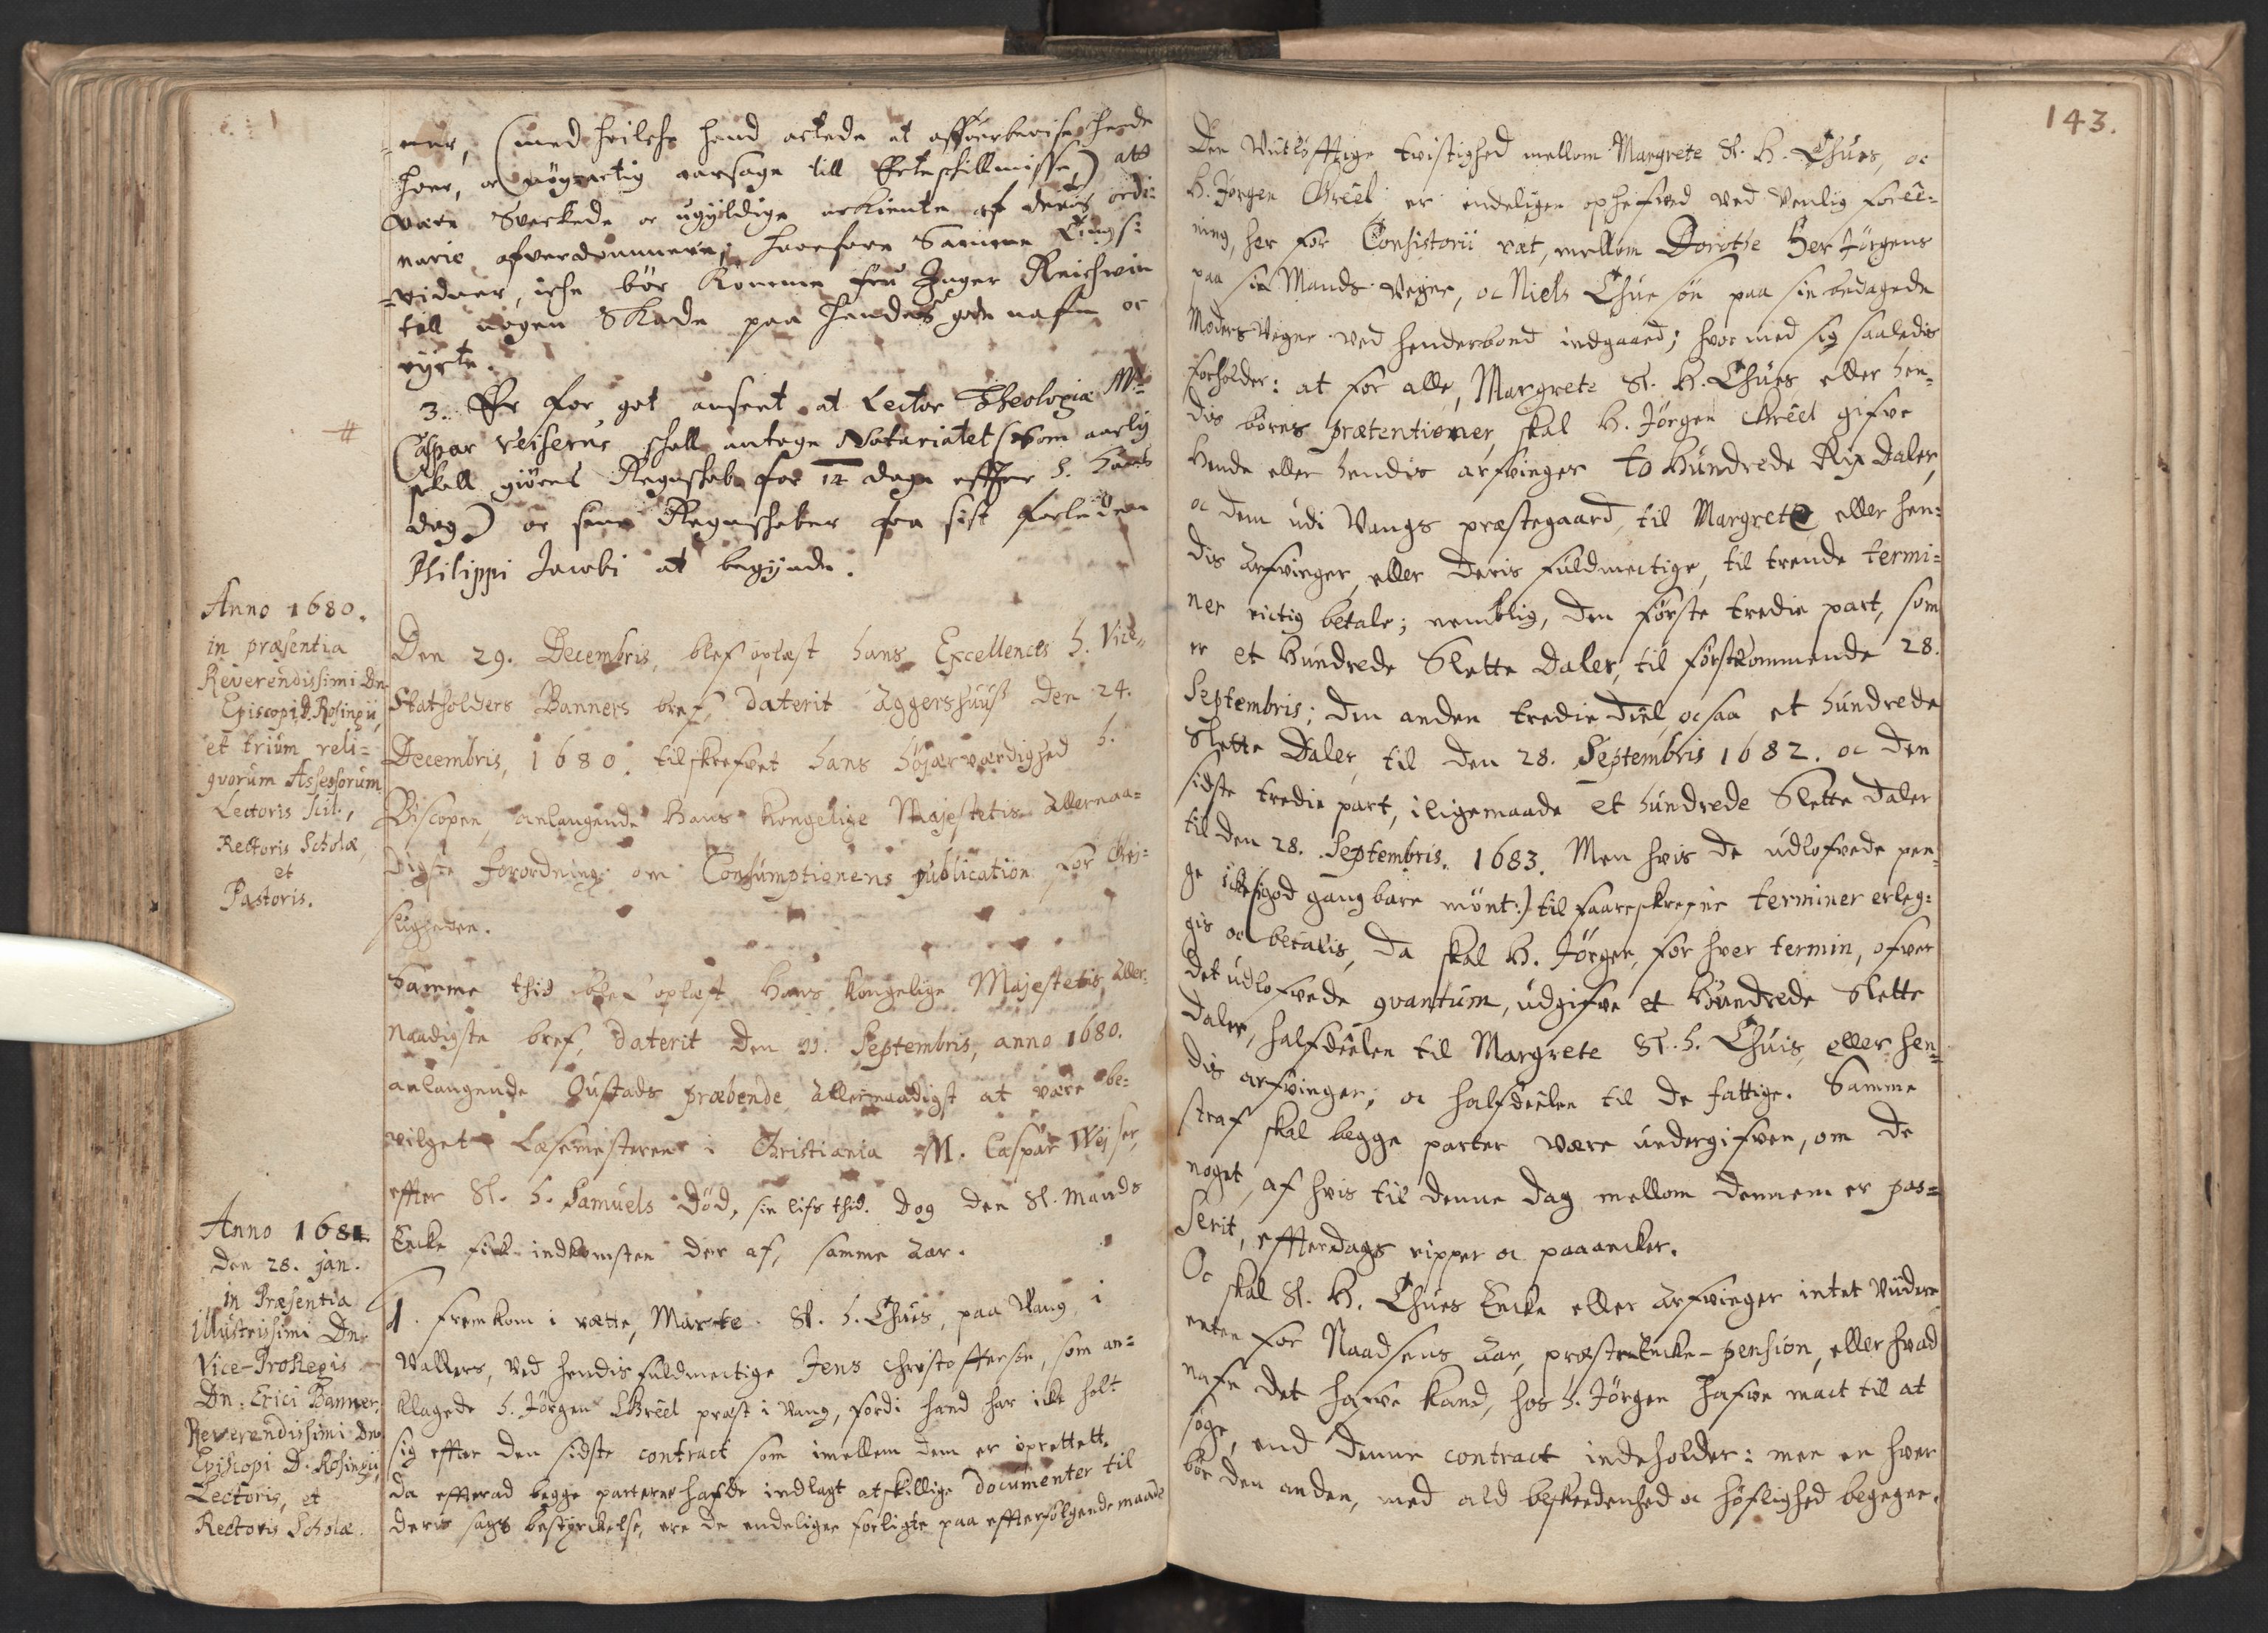 ner, (med hvilche hand actede at offverbevise hende
hoer, oc nøgactig aarsage till Echteschillmisse,) att
være Sveckede oc ugyldige erkiente af deris ordi-
narie ofverdommere; hvorfore Samme Tings-
vidner, iche bør Komme fru Inger Reichwin
till nogen Skade paa hendes gode nafn oc
rycte.
3. Er for got anseet at Lector Theologiæ M.
Caspar Veiserus schall antage Notariatet (som aarlig
schall giøres Regnschab for 14 dage effter H. Kaars
dag) oc sine Regenschaber fra sist forleden
Philippi Jacobi at begynde.
Anno 1680.
in præsentia
Reverendissimi Dn.
Episcopi D. Rosingii,
et trium reli-
qvorum Assessorum
Lectoris scil.,
Rectoris Scholæ,
et
Pastoris.
Den 29. Decembris, blef oplæst hans Excellences H. Vice-
Statholders Banners bref, daterit Aggershuus den 24.
Decembris, 1680. tilskrefvet hans højærværdighed H.
Biscopen, anlangende Hans Kongelige Majestetis Allernaa-
digste forordning om Consumptionens publication for Gej-
stligheden.
Samme thid blef oplæst Hans Kongelige Majestetis Aller-
naadigste bref, daterit den 11. Septembris, anno 1680.
anlangende Oustads præbende, allernaadigst at være be-
vilget Læsemesteren i Christiania M. Caspar Wejser,
effter Sl. H. Samuels Død, sin lifs thid. Dog den Sl. Mands
Encke fick indkomsten der af, samme Aar.
Anno 1681.
den 28. jan.
in Præsentia
illustrissimi Dn.
Vice-Proregis
Dn. Erici Banner,
Reverendissimi Dn.
Episcopi D. Rosingii,
Lectoris, et
Rectoris Scholæ.
1. fremkom i rætte, Marte Sl. H. Chues, paa Wang i
Valders, ved hendis fuldmectige Jens Christoffersøn, som an-
klagede H. Jørgen Greel præst i Vang, fordi hand har icke holt
sig effter den sidste contract som imellem dem er oprettet.
da effterad begge parterne hafde indlagt atskillige documenter til
deris sags bestyrckelse, ere de endeligen forligte paa effterfølgende maade
143.
Den Vitløfftige tvistighed mellom Margrete Sl. H. Chues, oc
H. Jørgen Greel er endeligen ophefved ved venlig foree-
ning, her for Consistorii ræt, mellom Dorothe Her Jørgens
paa sin Mands vegne, oc Niels Chuesøn paa sin bedagede
Moders vegne ved henderbond indgaaed; hvormed sig saaledis
forholder: at for alle, Margrete Sl. H. Chues eller hen-
dis børns prætentioner, skal H. Jørgen Greel gifve
Hende eller hendis arfvinger to Hundrede Rix Daler,
oc dem udi Vangs præstegaard, til Margrete eller hen-
dis Arfvinger, eller deris fuldmectige, til trende termi-
ner rictig betale; nemblig, den første tredie part, som
er et Hundrede Slette Daler, til førstkommende 28.
Septembris; den anden tredie deel, ocsaa et hundrede
Slette Daler, til den 28. Septembris 1682. oc den
sidste tredie part, iligemaade et hundrede Slette daler
til den 28. Septembris. 1683. Men hvis de udlofvede pen-
ge icke (:i god gangbare mønt:) til faareskrefne terminer erleg-
gis oc betalis, da skal H. Jørgen, for hver termin, ofver
det udlofvede qvantum, udgifve et Hundrede Slette
daler, halfdeelen til Margrete Sl. H. Chuis, eller hen-
dis arfvinger, oc halfdeelen til de fattige. Samme
straf skal begge parter være undergifven, om de
noget, af hvis til denne dag mellom dennem er pas-
serit, effterdags ripper oc paaancker.
Oc skal Sl. H. Chues Encke eller Arfvinger intet Videre
enten for Naadsens Aar, præste-Encke-pension, eller hvad
nafn det hafve kand, hos H. Jørgen hafve mact til at
søge, end denne contract indeholder: men en hver
bør den anden, med ald beskeedenhed oc høflighed begegne.